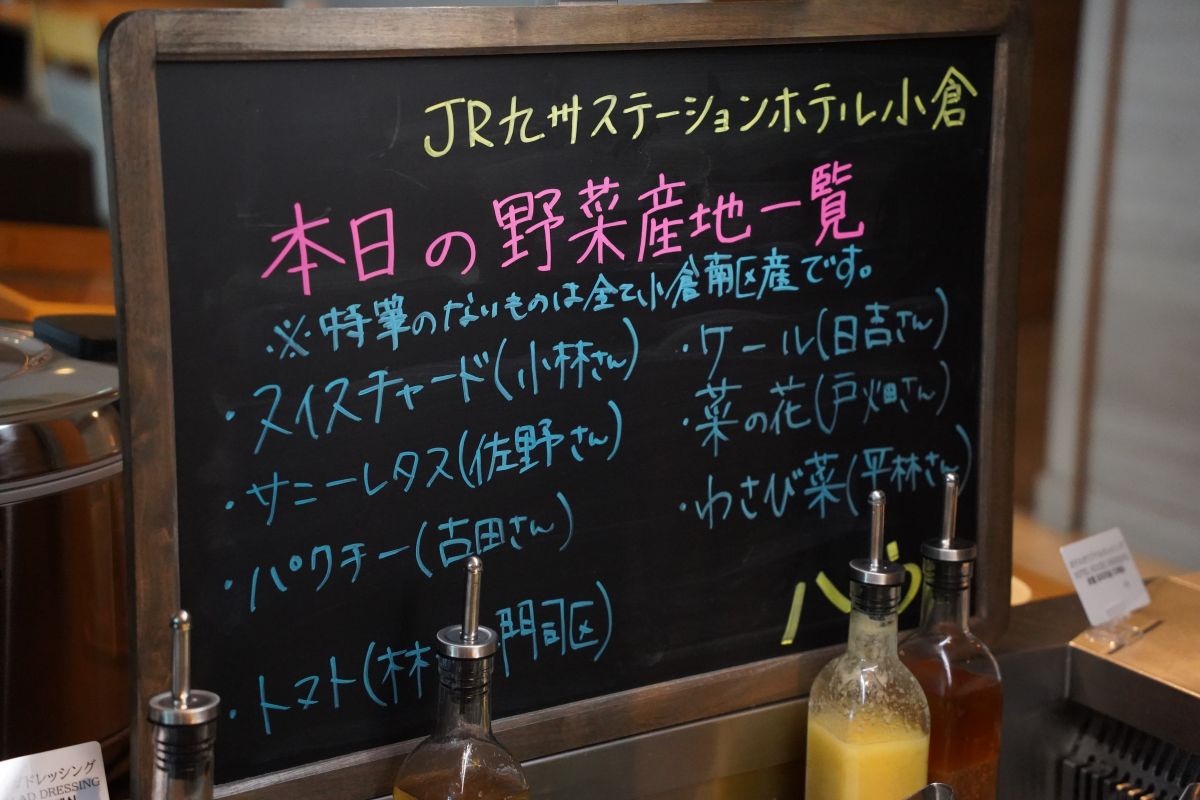 JR九州ステーションホテル小倉
本日の野菜産地一覧
※特筆のないものは全て小倉南区産です。
・スイスチャード(小林さん)
・サニーレタス(佐野さん)
・パクチー(古田さん)
・トマト(林 門司区)
・ケール(日吉さん)
・菜の花(戸畑さん)
・わさび菜(平林さん)
ドレッシング
AD DRESSING